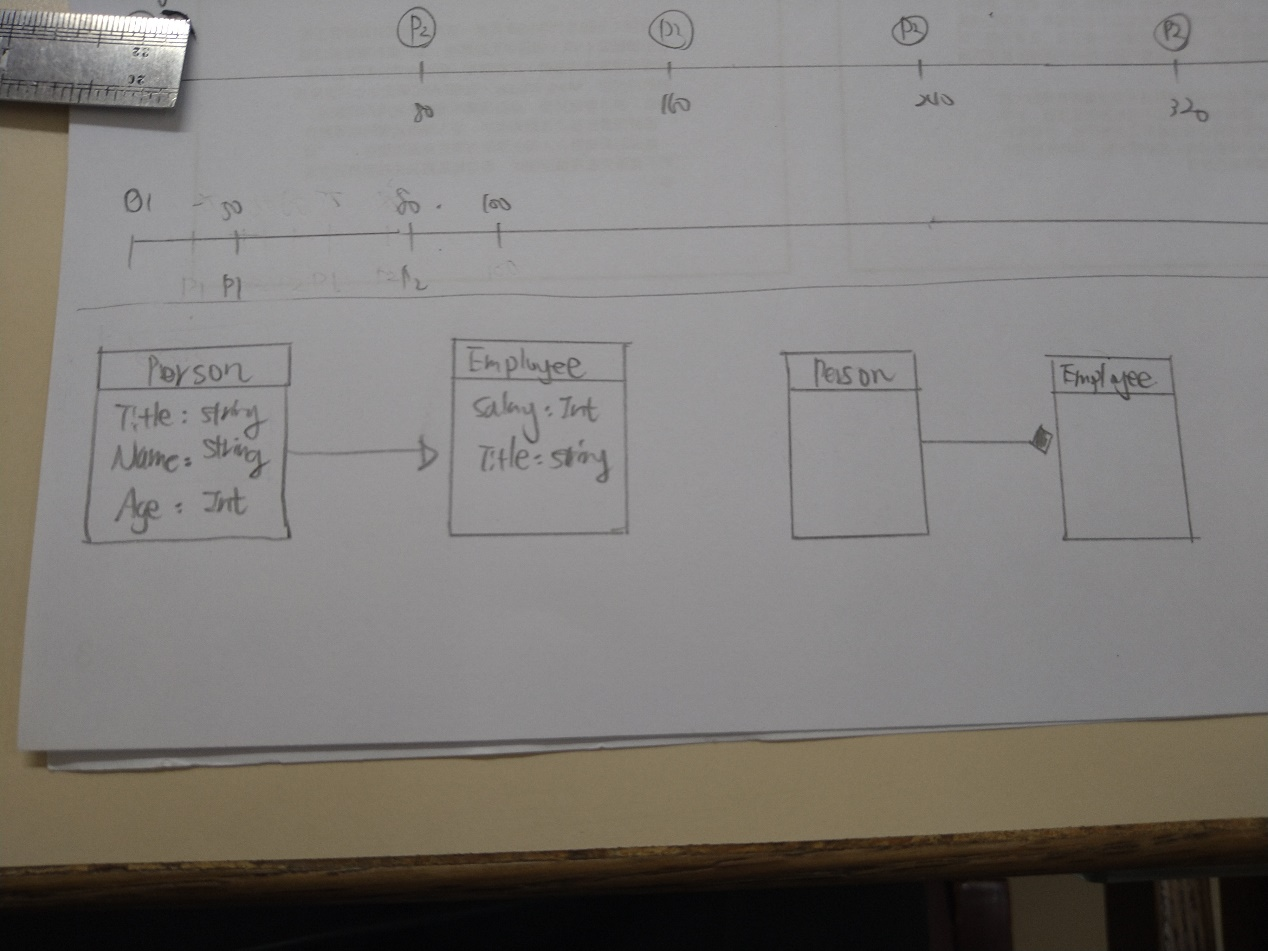 P2 P2 P2 P2
80 160 240 320
22
20
01 30 80 100
P1 P2
Person
Title: string
Name: string
Age: Int
Employee
Salary: Int
Title: string
Person
Employee